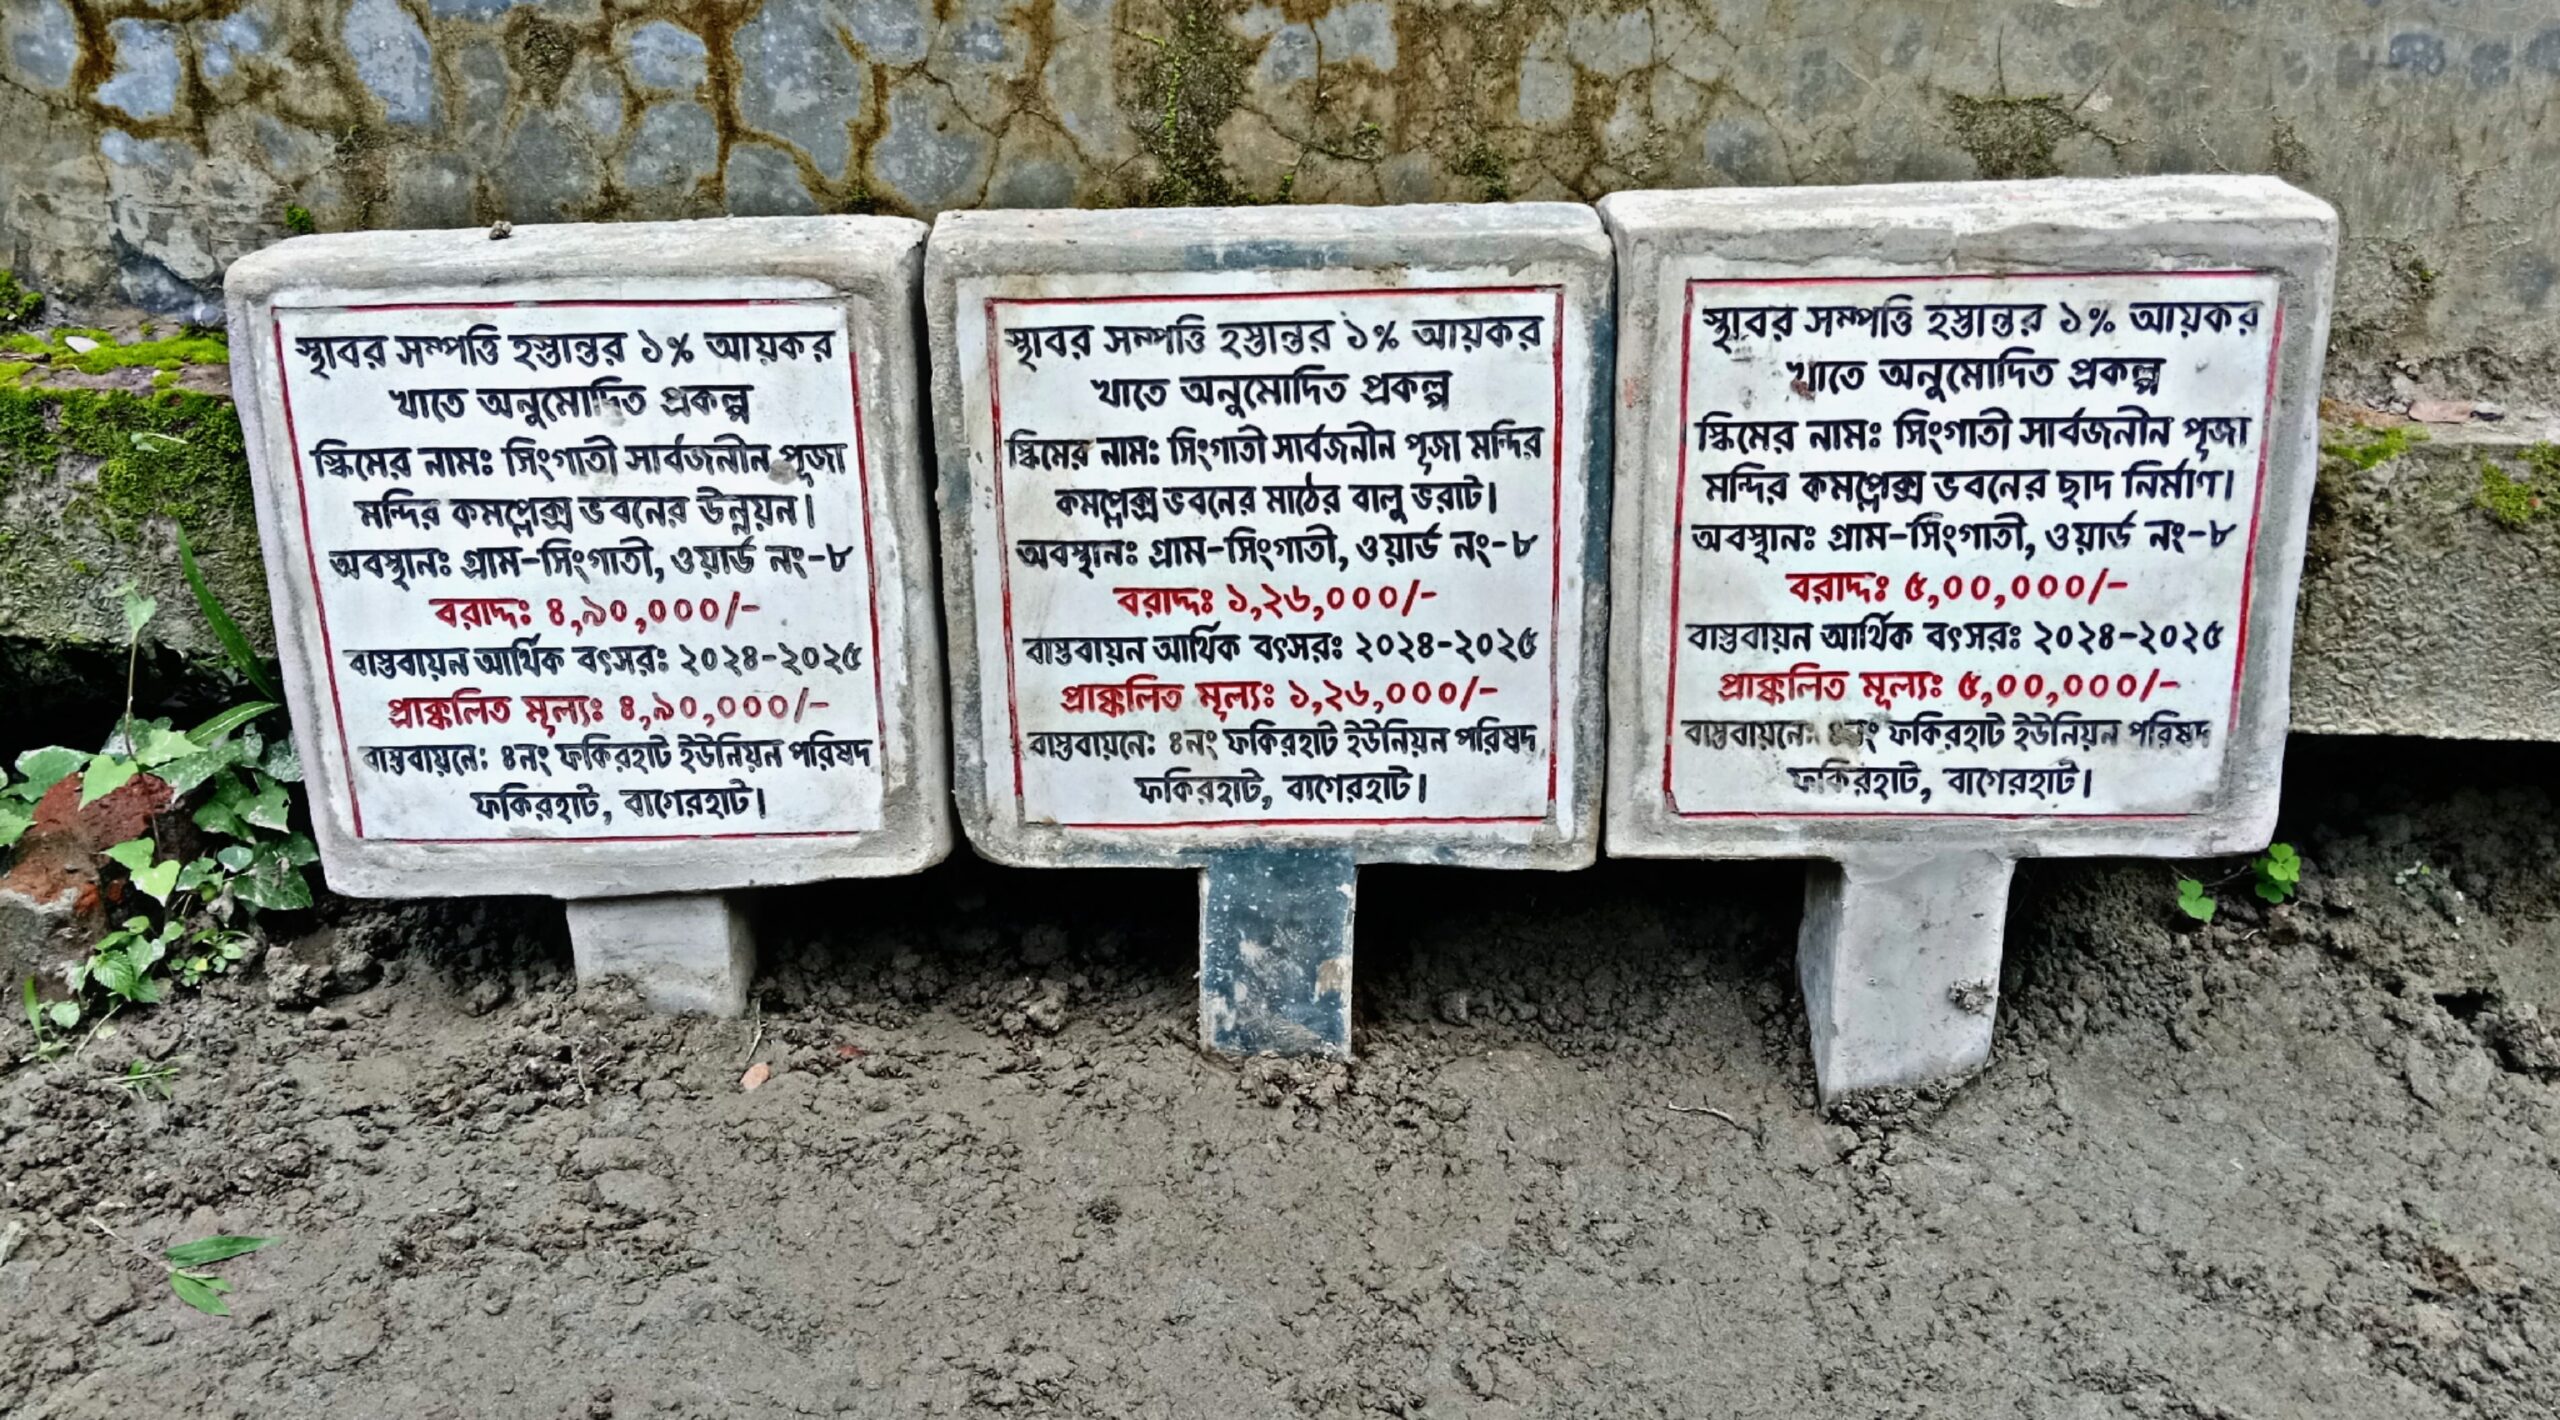 স্থাবর সম্পত্তি হস্তান্তর ১% আয়কর
খাতে অনুমোদিত প্রকল্প
স্কিমের নামঃ সিংগাতী সার্বজনীন পূজা
মন্দির কমপ্লেক্স ভবনের উন্নয়ন।
অবস্থানঃ গ্রাম-সিংগাতী, ওয়ার্ড নং-৮
বরাদ্দঃ ৪,৯০,০০০/-
বাস্তবায়ন আর্থিক বৎসরঃ ২০২৪-২০২৫
প্রাক্কলিত মূল্যঃ ৪,৯০,০০০/-
বাস্তবায়নে: ৪নং ফকিরহাট ইউনিয়ন পরিষদ
ফকিরহাট, বাগেরহাট।
স্থাবর সম্পত্তি হস্তান্তর ১% আয়কর
খাতে অনুমোদিত প্রকল্প
স্কিমের নামঃ সিংগাতী সার্বজনীন পূজা মন্দির
কমপ্লেক্স ভবনের মাঠের বালু ভরাট।
অবস্থানঃ গ্রাম-সিংগাতী, ওয়ার্ড নং-৮
বরাদ্দঃ ১,২৬,০০০/-
বাস্তবায়ন আর্থিক বৎসরঃ ২০২৪-২০২৫
প্রাক্কলিত মূল্যঃ ১,২৬,০০০/-
বাস্তবায়নে: ৪নং ফকিরহাট ইউনিয়ন পরিষদ
ফকিরহাট, বাগেরহাট।
স্থাবর সম্পত্তি হস্তান্তর ১% আয়কর
খাতে অনুমোদিত প্রকল্প
স্কিমের নামঃ সিংগাতী সার্বজনীন পূজা
মন্দির কমপ্লেক্স ভবনের ছাদ নির্মাণ।
অবস্থানঃ গ্রাম-সিংগাতী, ওয়ার্ড নং-৮
বরাদ্দঃ ৫,০০,০০০/-
বাস্তবায়ন আর্থিক বৎসরঃ ২০২৪-২০২৫
প্রাক্কলিত মূল্যঃ ৫,০০,০০০/-
বাস্তবায়নে: ফকিরহাট ইউনিয়ন পরিষদ
ফকিরহাট, বাগেরহাট।